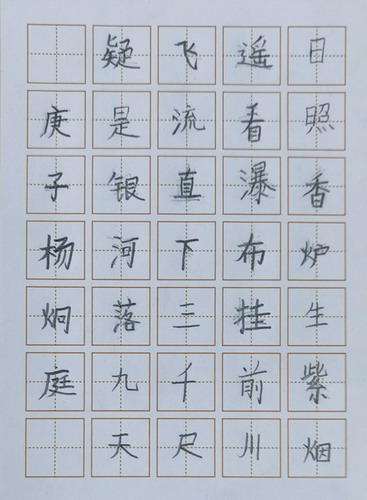 日照香炉生紫烟
遥看瀑布挂前川
飞流直下三千尺
疑是银河落九天
庚子杨炯庭